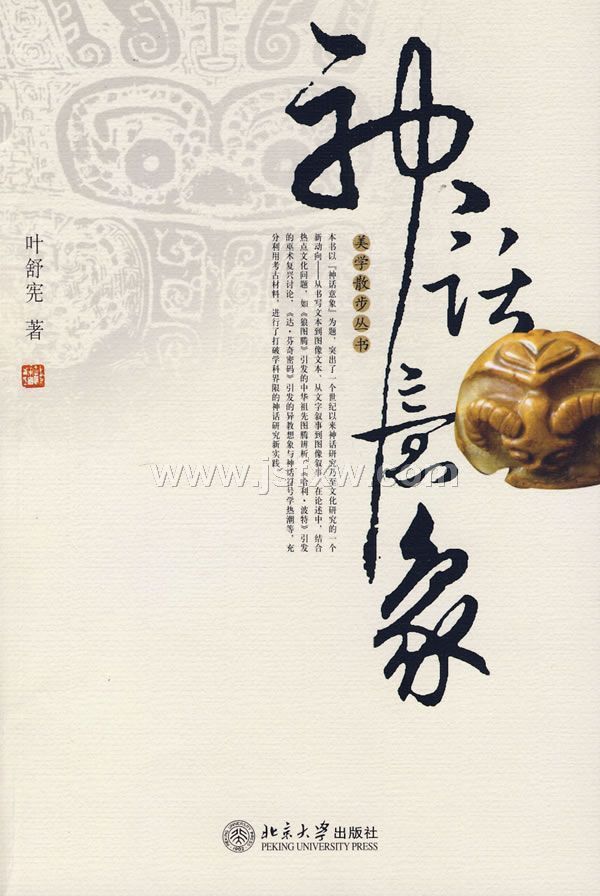 神话意象
美学散步丛书
本书以“神话意象”为题，突出了一个世纪以来神话研究乃至文化研究的一个
新动向——从书写文本到图像文本，从文字叙事到图像叙事。在论述中，结合
热点文化问题，如《狼图腾》引发的中华祖先图腾辨析，《哈利·波特》引发
的巫术复兴讨论，《达·芬奇密码》引发的异教想象与神话符号学热潮等，充
分利用考古材料，进行了打破学科界限的神话研究新实践。
叶舒宪 著
www.jsfxw.com
北京大学出版社
PEKING UNIVERSITY PRESS